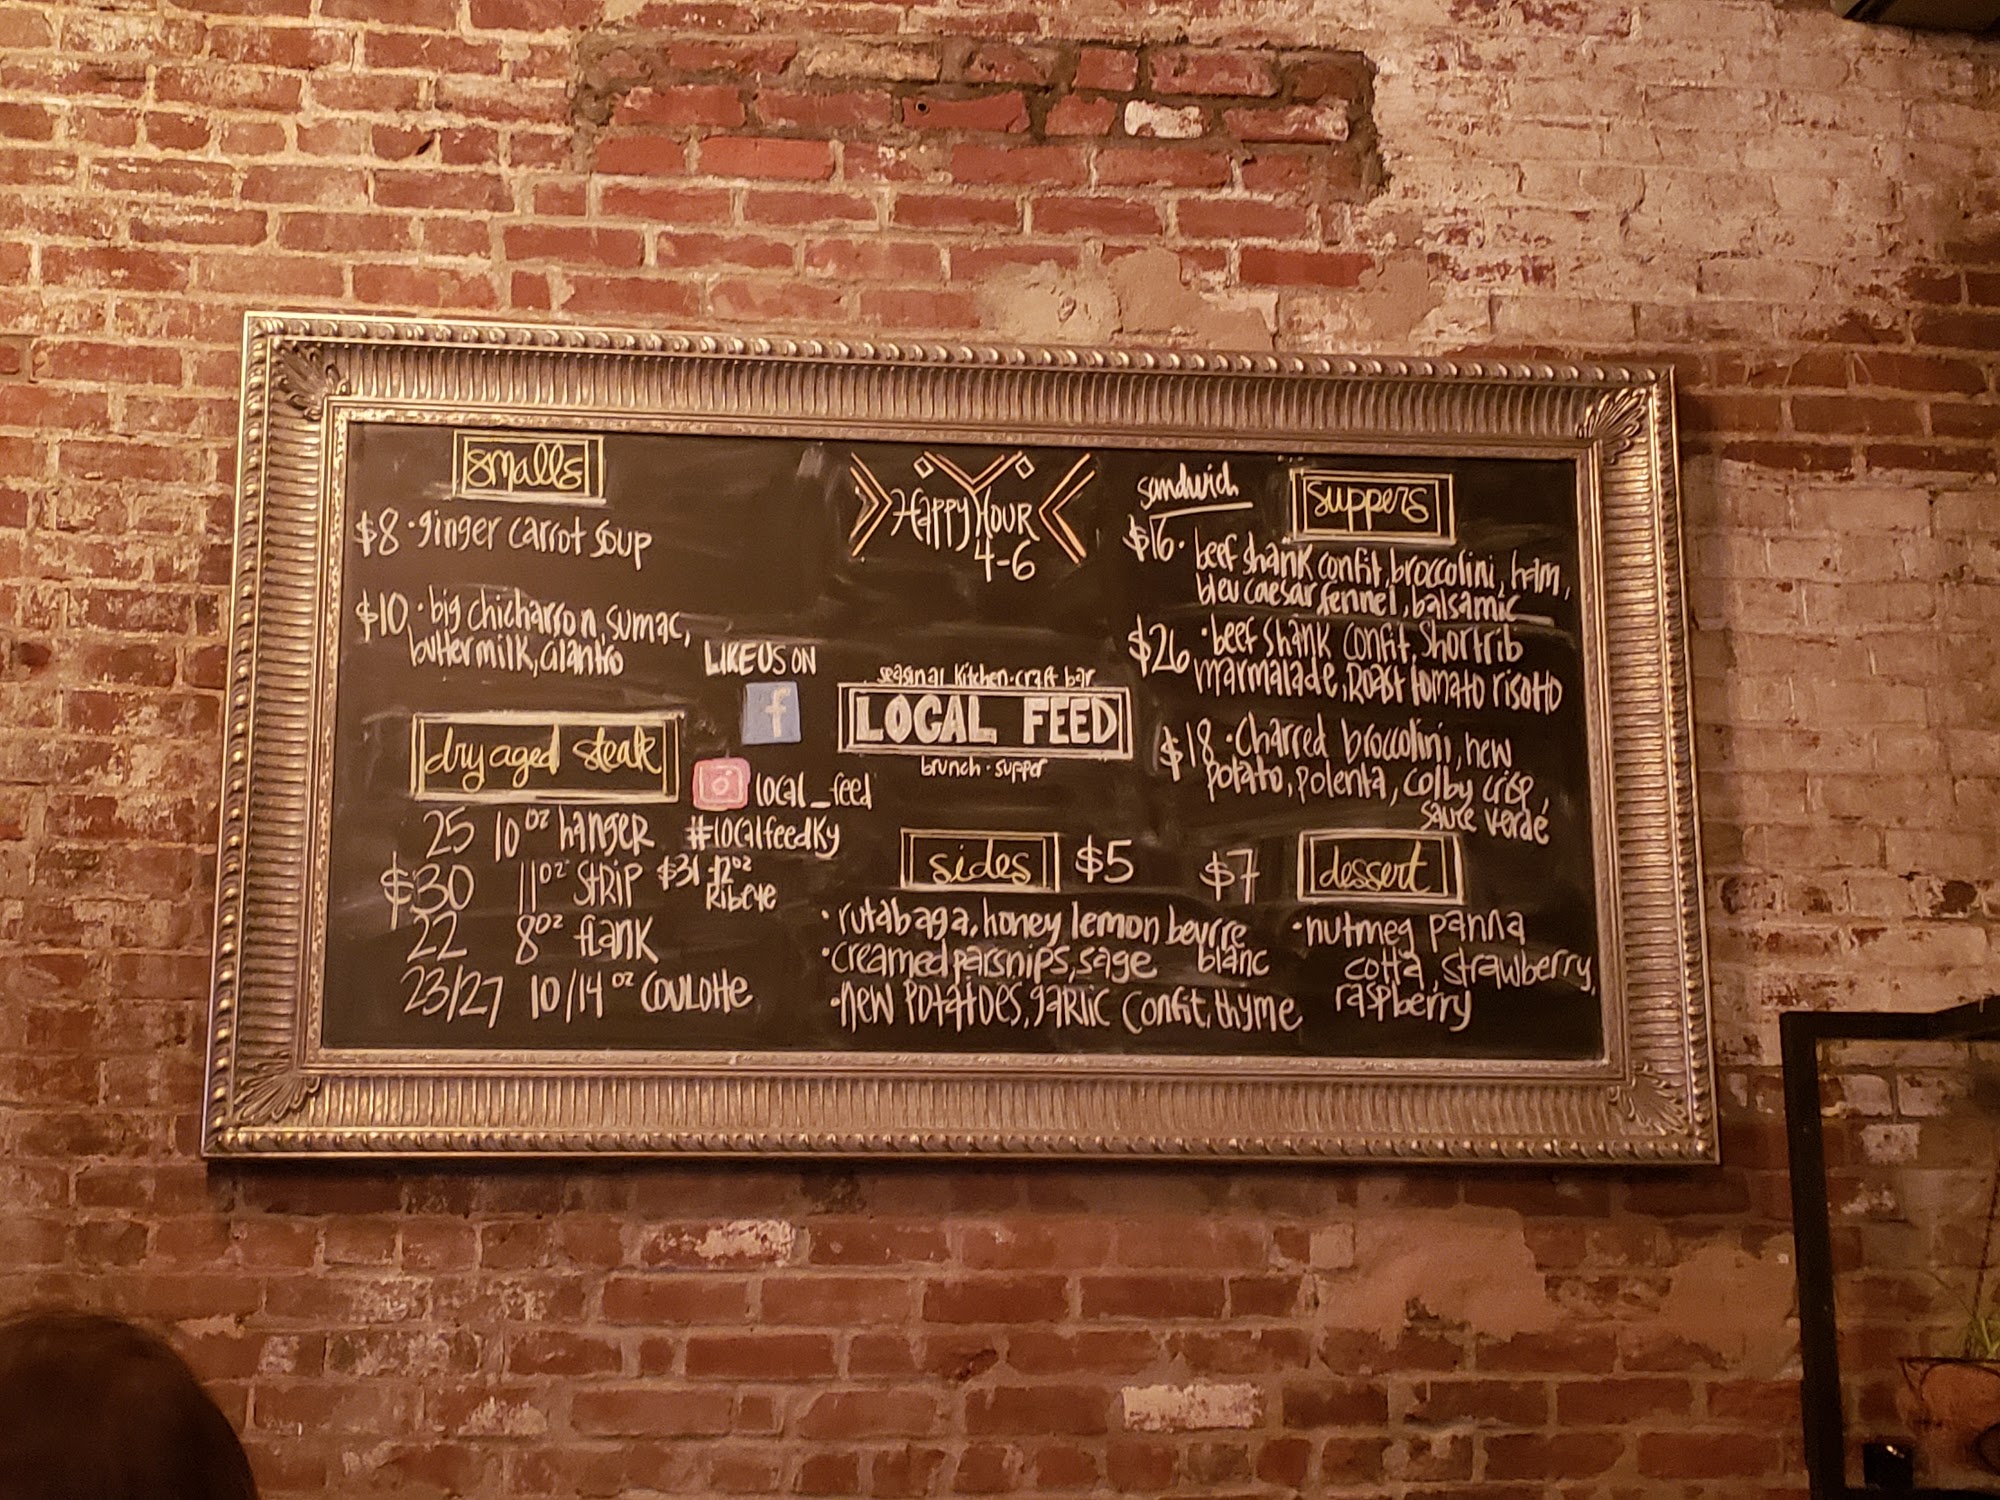 smalls
$8 · ginger carrot soup
$10 · big chicharron, sumac,
buttermilk, cilantro
dry aged steak
25 10 oz hanger
$30 11 oz strip $31 12 oz
Ribeye
22 8 oz flank
23/27 10/14 oz coulotte
Happy Hour
4-6
LIKE US ON
f
local_feed
#localfeedky
seasonal kitchen · craft bar
LOCAL FEED
brunch · supper
sandwich
suppers
$16 · beef shank confit, broccolini, ham,
bleu caesar, fennel, balsamic
$26 · beef shank confit, shortrib
marmalade, roast tomato risotto
$18 · charred broccolini, new
potato, polenta, colby crisp,
sauce verde
sides $5
· rutabaga, honey lemon beurre
blanc
· creamed parsnips, sage
· new potatoes, garlic confit, thyme
$7 dessert
· nutmeg panna
cotta, strawberry,
raspberry